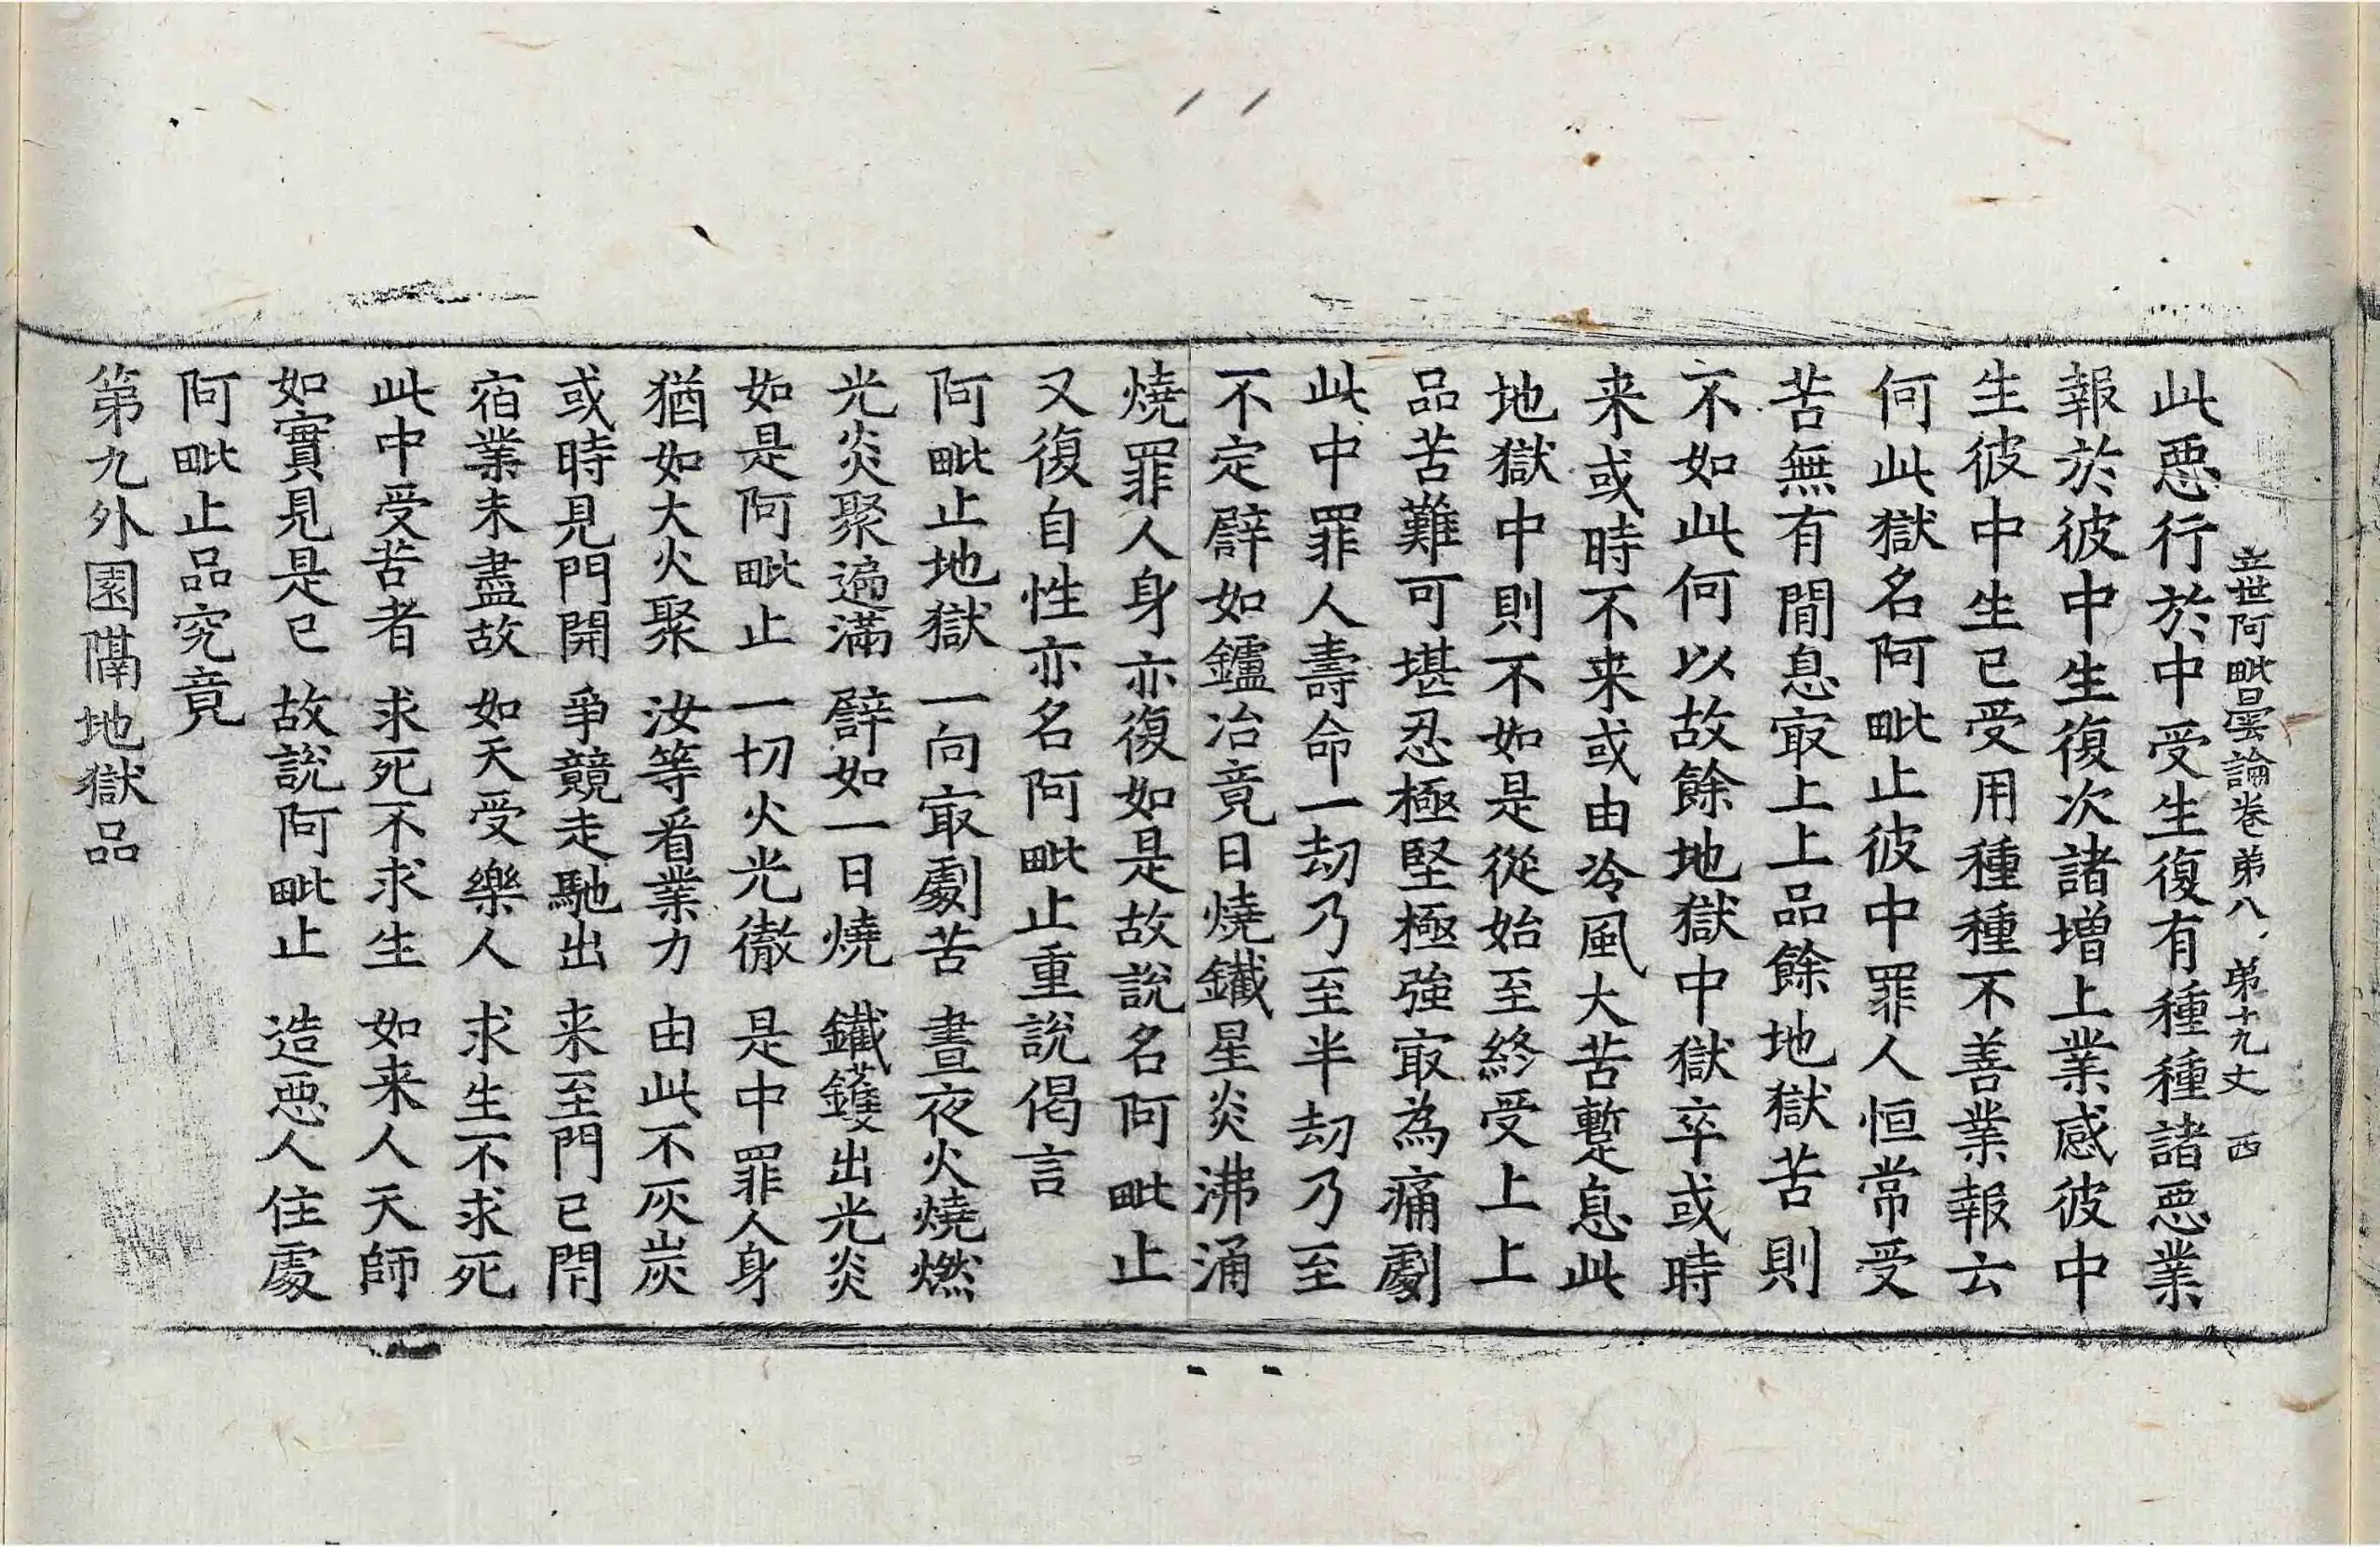 立世阿毗曇論卷第八 第十九丈 西
此悪行於中受生復有種種諸悪業
報於彼中生復次諸増上業感彼中
生彼中生已受用種種不善業報云
何此獄名阿毗止彼中罪人恒常受
苦無有間息㝡上上品餘地獄苦則
不如此何以故餘地獄中獄卒或時
来或時不来或由冷風大苦蹔息此
地獄中則不如是從始至終受上上
品苦難可堪忍極堅極強㝡為痛劇
此中罪人壽命一劫乃至半劫乃至
不定譬如鑪冶竟日燒鐵星炎沸涌
燒罪人身亦復如是故說名阿毗止
又復自性亦名阿毗止重說偈言
阿毗止地獄 一向㝡劇苦 晝夜火燒燃
光炎聚遍滿 譬如一日燒 鐵鑊出光炎
如是阿毗止 一切火光徹 是中罪人身
猶如大火聚 汝等看業力 由此不灰炭
或時見門開 爭競走馳出 来至門已閇
宿業未盡故 如天受樂人 求生不求死
此中受苦者 求死不求生 如来人天師
如實見是已 故說阿毗止 造悪人住處
阿毗止品究竟
第九外園隔地獄品